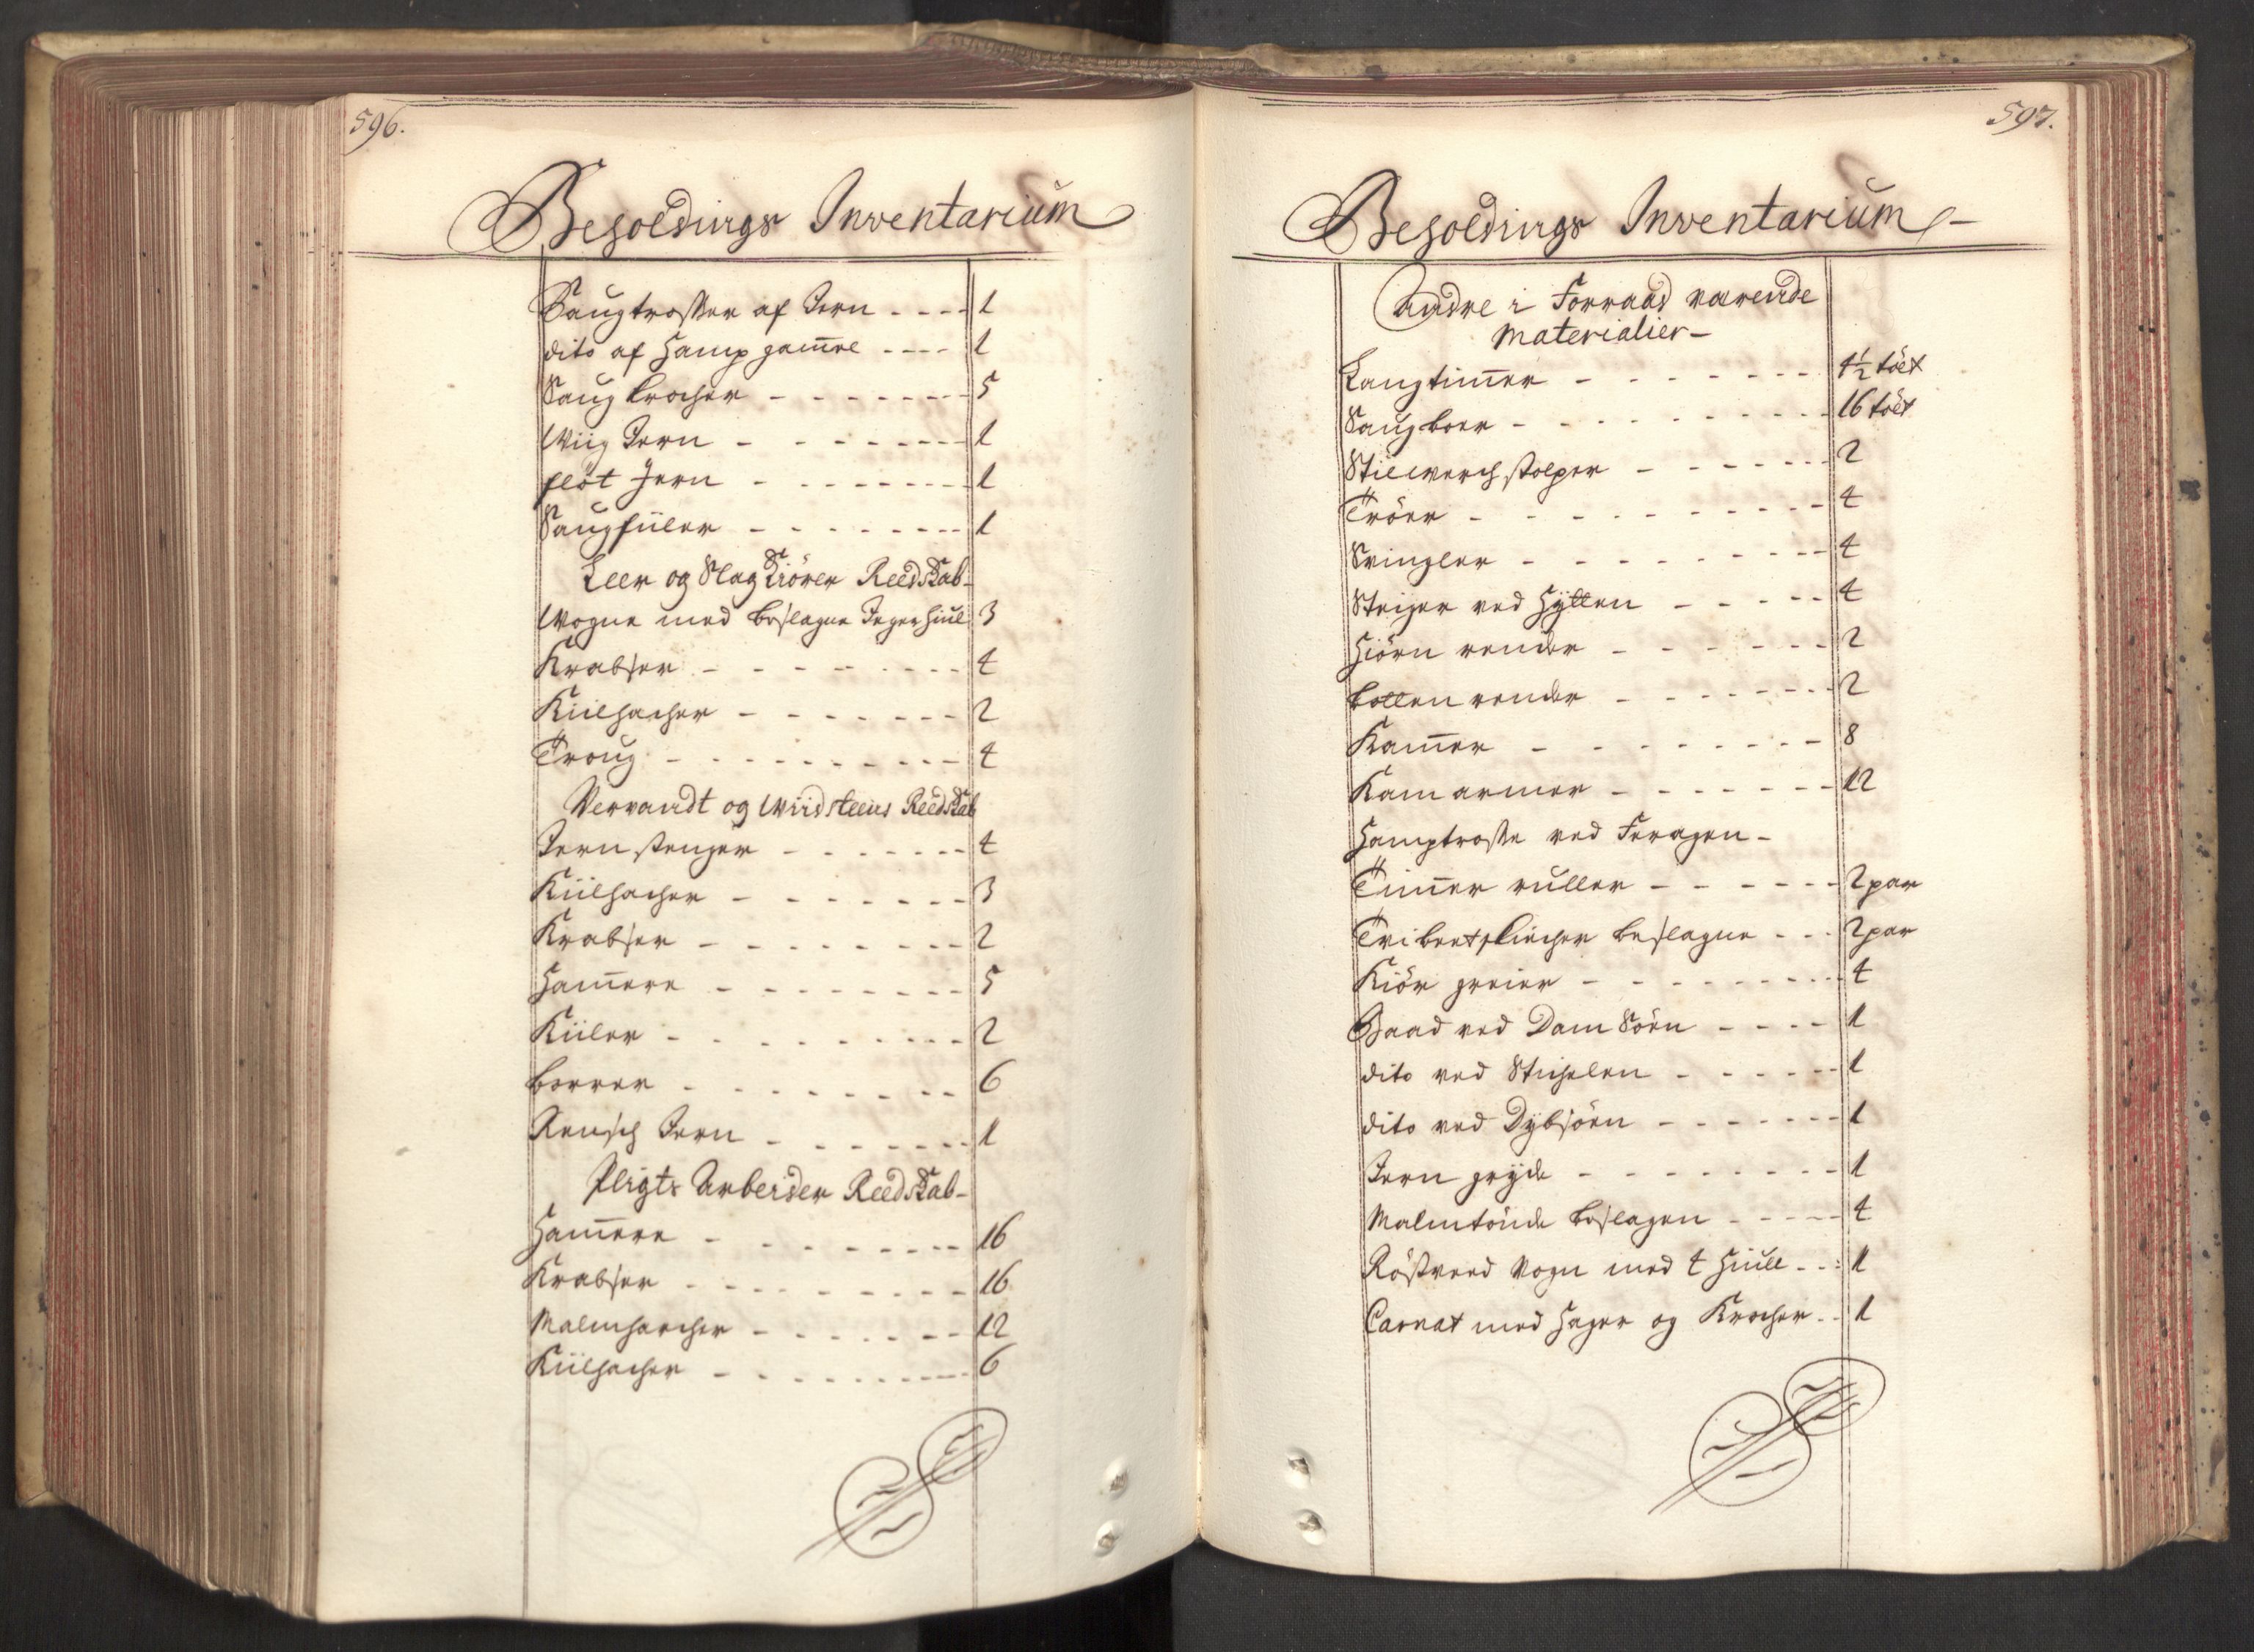 596.
Beholdings Inventarium
Saugtrosser af Jern - - - - 1
dito af Hamp gam̅el - - - - 1
Saug krocher - - - - - - - 5
Wiig Jern - - - - - - - 1
fløt Jern - - - - - - - - 1
Saugfiiler - - - - - - - - 1
Leer og Slag Kiörer Reedskab-
Wogne med beslagne Jeger Hiul 3
Krabser - - - - - - - - - 4
Kiilhacher - - - - - - - 2
Troug - - - - - - - - - - 4
Vervandt og Wiidsteens Reedskab
Jern stenger - - - - - - - 4
Kiilhacher - - - - - - - 3
Krabser - - - - - - - - - 2
Ham̅ere - - - - - - - - 5
Kiiler - - - - - - - - - 2
borrer - - - - - - - - 6
Rensch Jern - - - - - - - 1
Pligts Arbeider Reedskab-
Ham̅ere - - - - - - - - 16
Krabser - - - - - - - - 16
Malmharcher - - - - - - - 12
Kiilhacher - - - - - - - - 6
597.
Beholdings Inventarium
Andre i Forraad værende
Materialier-
Langtim̅er - - - - - - - 4½ tölt
Saugboer - - - - - - - - 16 tölt
Stilwerch stolper - - - - - - 2
Tröer - - - - - - - - - - 4
Svingler - - - - - - - - 4
Steiger ved Hytten - - - - - 4
Hiörn render - - - - - - 2
botten render - - - - - - - 2
Kam̅er - - - - - - - - 8
Kam armer - - - - - - - 12
Hamptrosse ved Feragen -
Tim̅er ruller - - - - - - 2 par
beslagne - - - 2 par
Kiör greier - - - - - - - - 4
Baad ved Dam Söen - - - - 1
dito ved Stichelen - - - - - - 1
dito ved Dybsöen - - - - - - - 1
Jern gryde - - - - - - - - 1
Malmtönde beslagen - - - - - 4
Röstveed Vogn med 4 Hiull - - 1
Carnat med Hager og Krocher - - 1